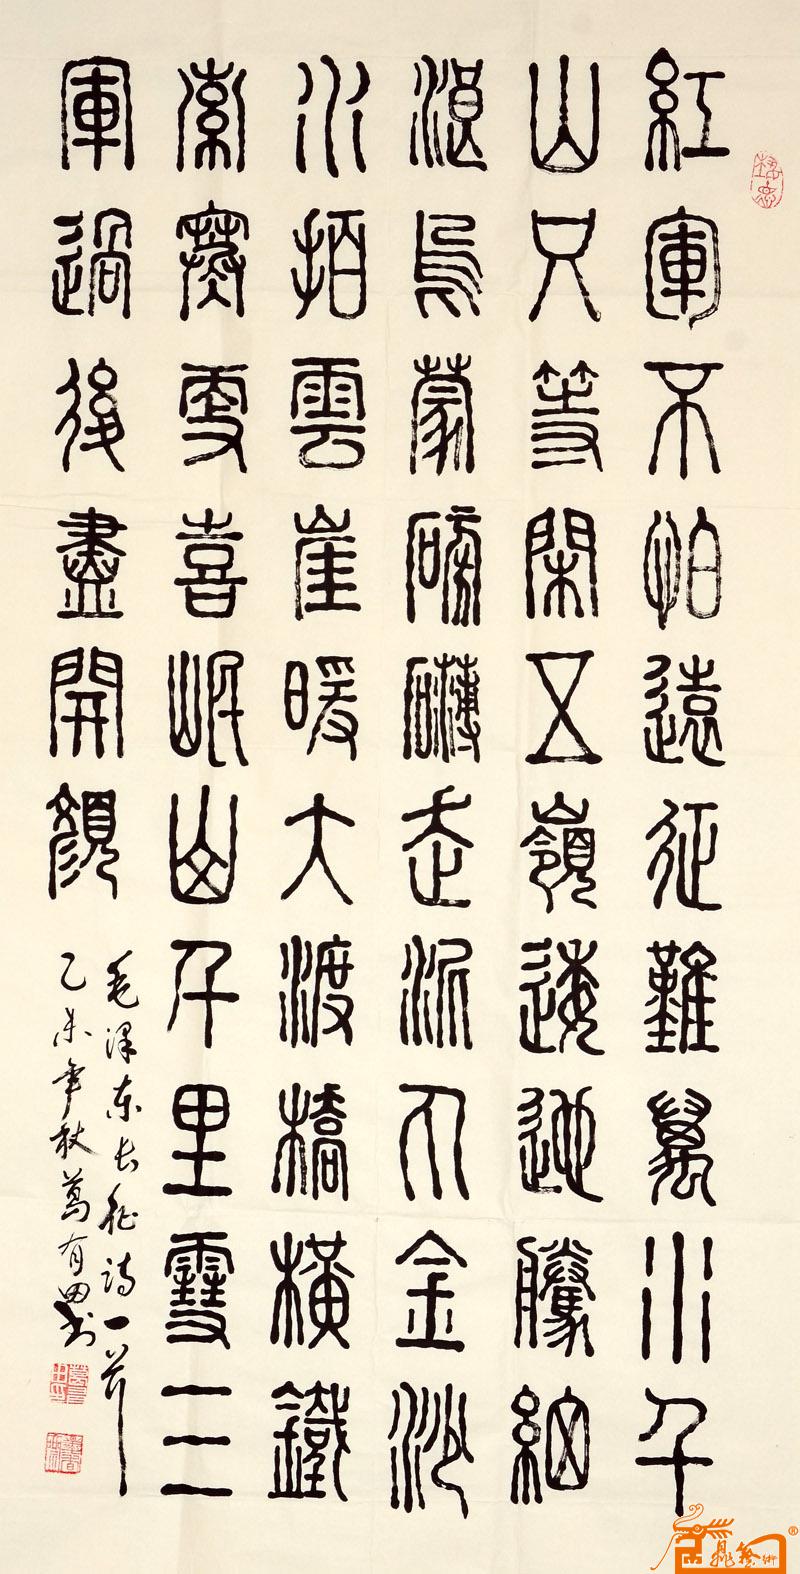 紅軍不怕遠征難萬水千
山只等閑五嶺逶迤騰細
浪烏蒙磅礴走泥丸金沙
水拍雲崖暖大渡橋橫鐵
索寒更喜岷山千里雪三
軍過後盡開顏
毛泽东长征诗一首
乙未年秋葛有田书